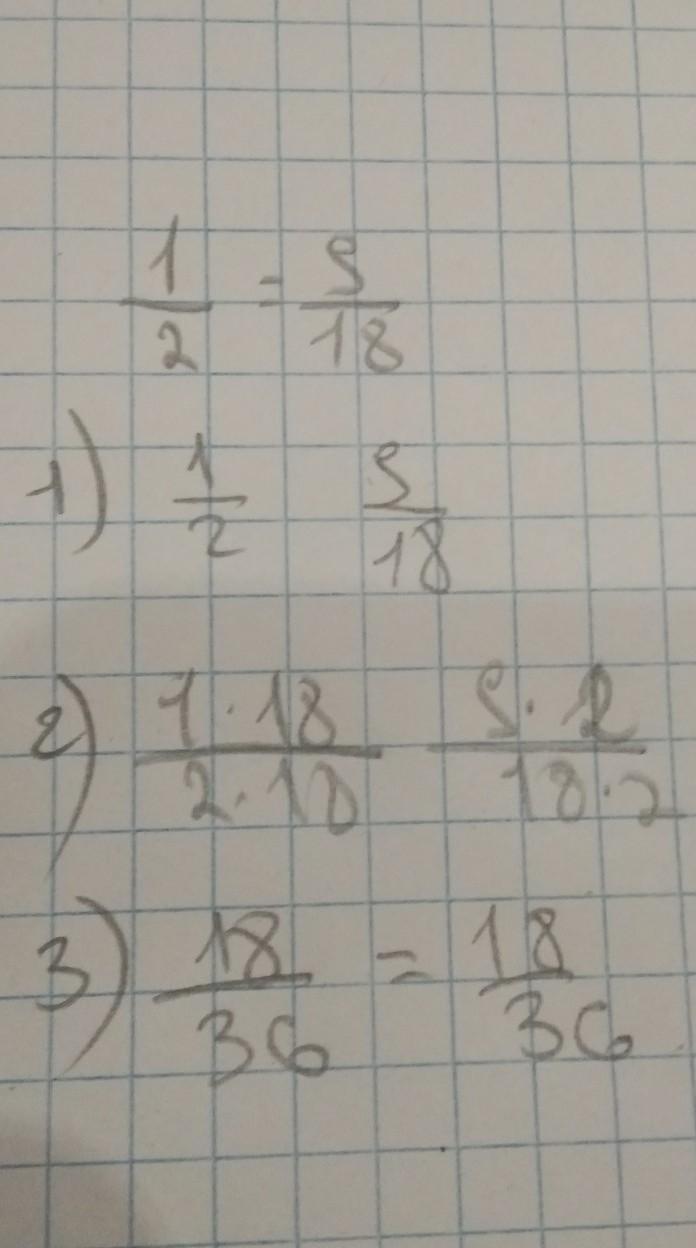 1/2 = 9/18
1) 1/2 9/18
2) 1·18/2·18 9·2/18·2
3) 18/36 = 18/36